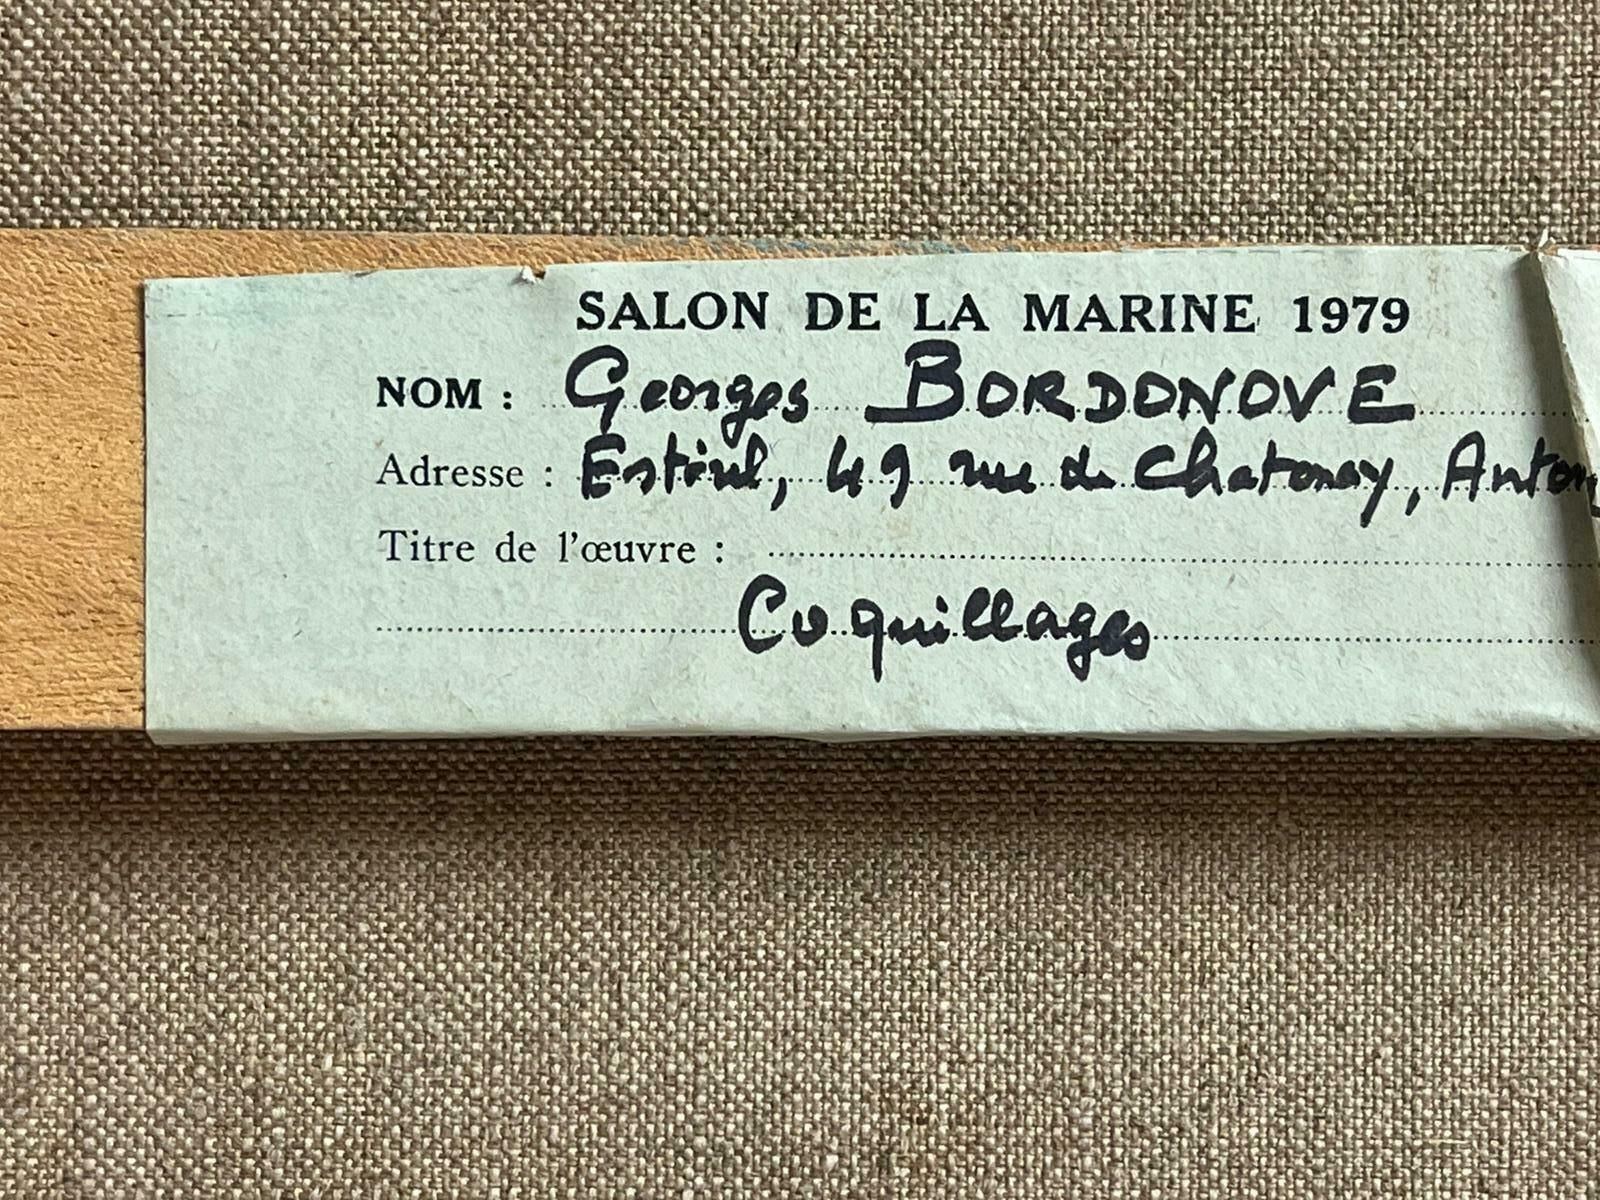 SALON DE LA MARINE 1979
NOM : Georges BORDONOVE
Adresse : 49 rue de Chatenay, Antony
Titre de l'œuvre :
Coquillages